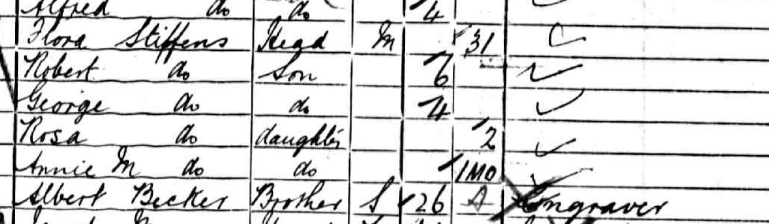 Alfred do do 4
Flora Stiffens Head M 31
Robert do Son 6
George do do 4
Rosa do daughter 2
Annie M do do 1 MO
Albert Becker Brother S 26 Engraver